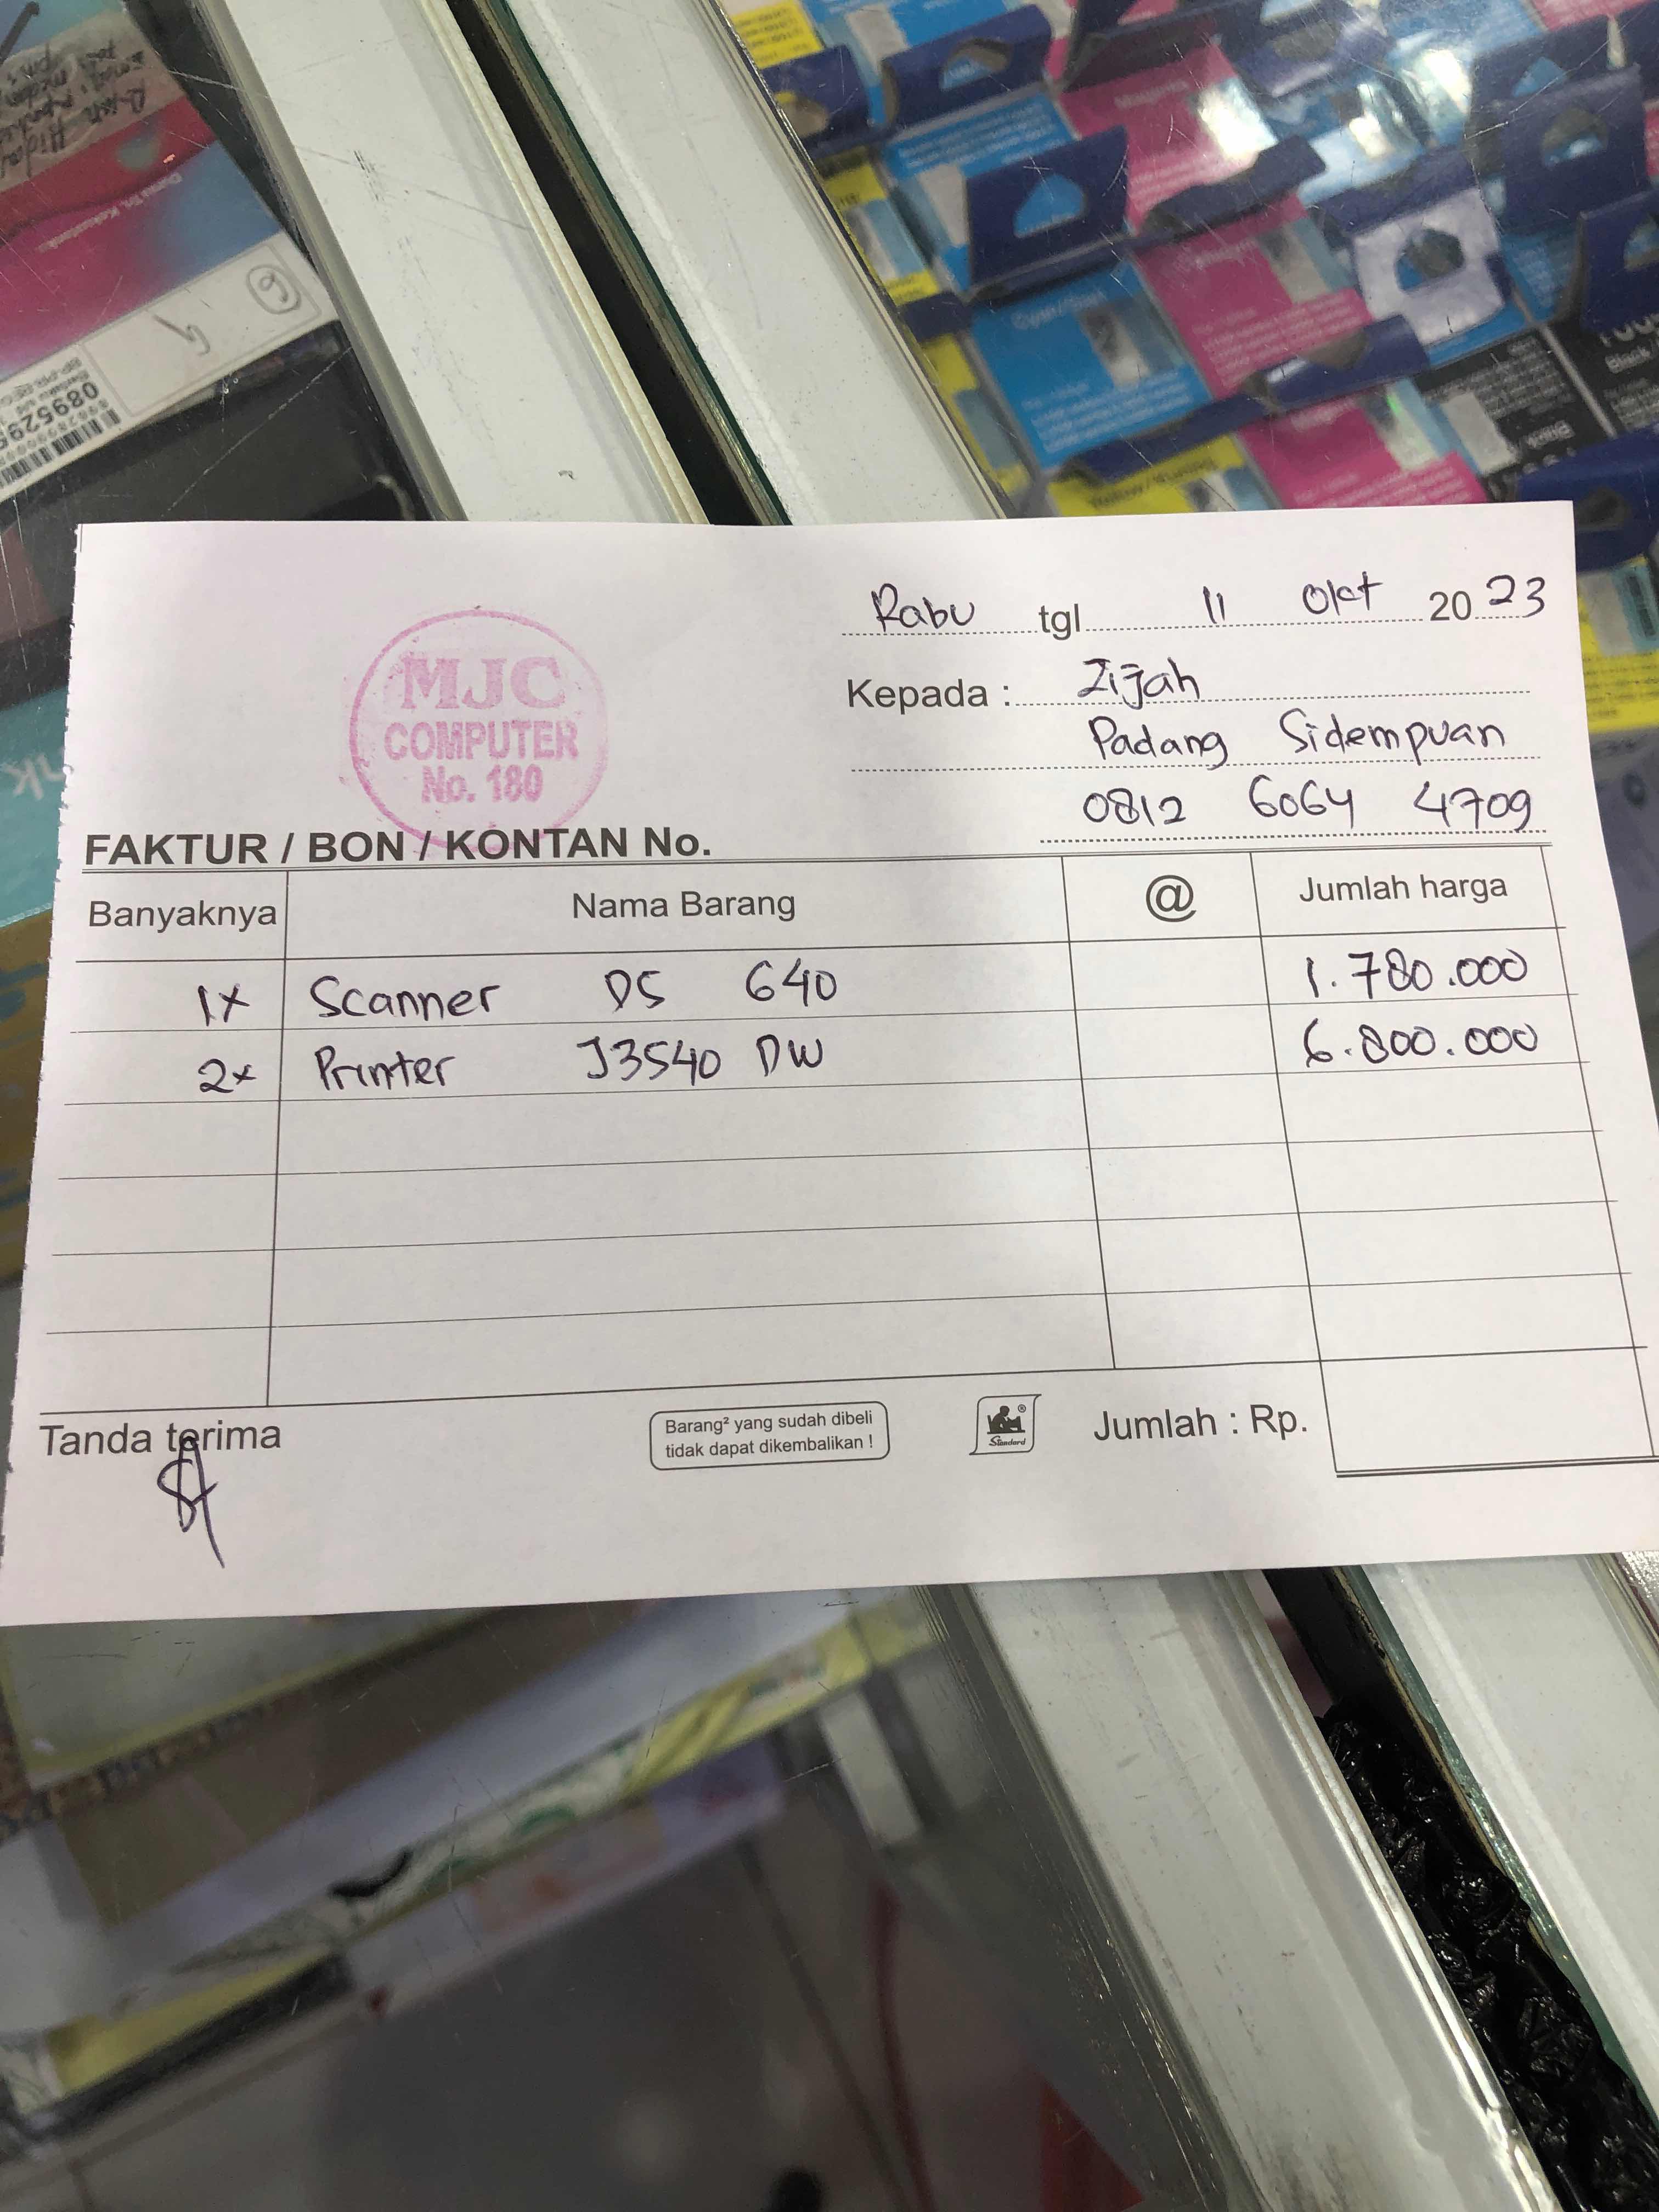 Rabu tgl 11 Okt 2023
Kepada : Zijah
Padang Sidempuan
0812 6064 4709
MJC
COMPUTER
No. 180
FAKTUR / BON / KONTAN No.
Banyaknya Nama Barang @ Jumlah harga
1x Scanner DS 640 1.780.000
2x Printer J3540 DW 6.800.000
Tanda terima
Barang² yang sudah dibeli
tidak dapat dikembalikan !
Standard ®
Jumlah : Rp.
Magenta
Black